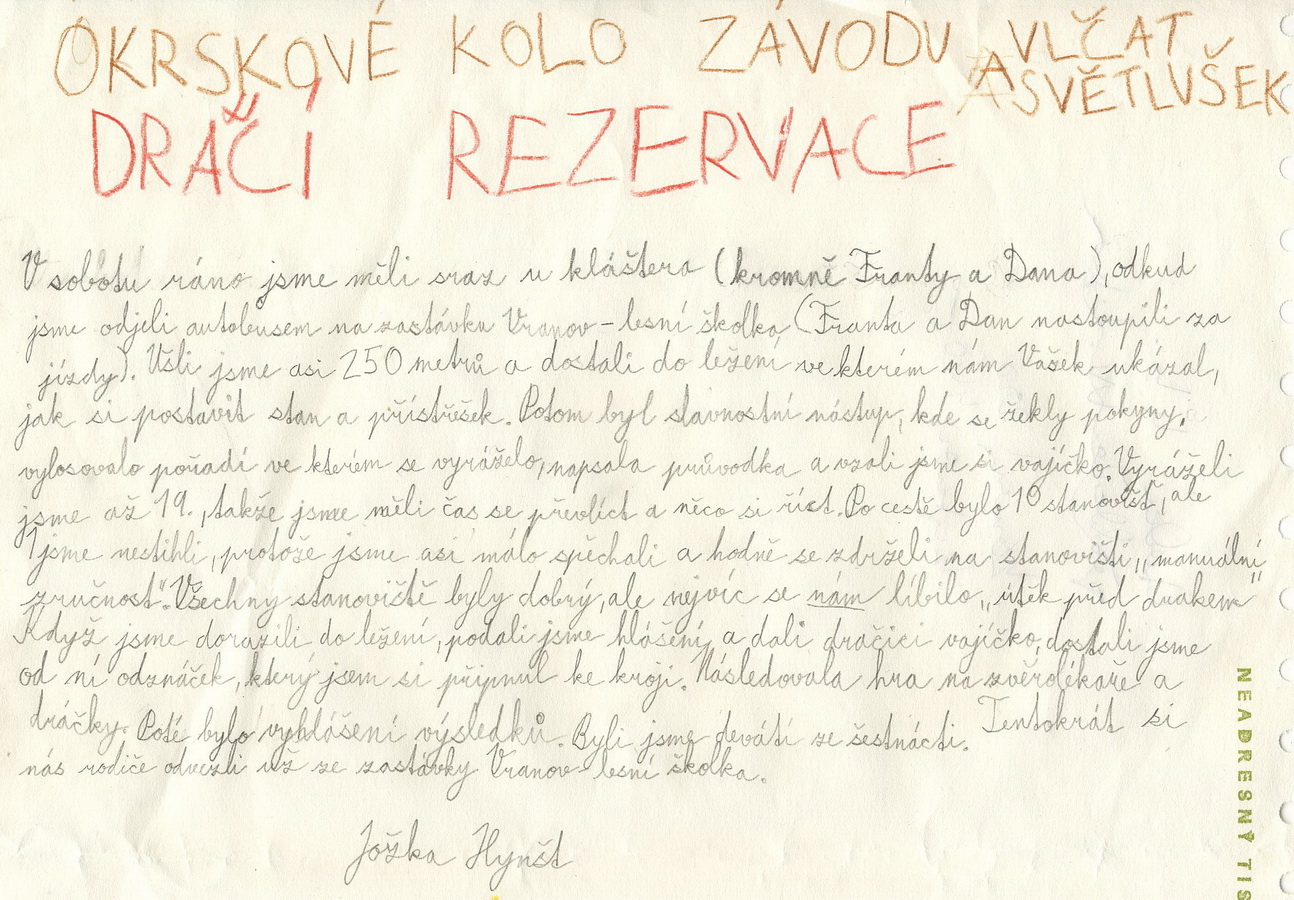 OKRSKOVÉ KOLO ZÁVODU VLČAT
A SVĚTLUŠEK
DRAČÍ REZERVACE
V sobotu ráno jsme měli sraz u kláštera (kromně Franty a Dana), odkud
jsme odjeli autobusem na zastávku Vranov - lesní školka (Franta a Dan nastoupili za
jízdy). Ušli jsme asi 250 metrů a dostali do ležení ve kterém nám Vašek ukázal,
jak si postavit stan a přístřešek. Potom byl slavnostní nástup, kde se řekly pokyny,
vylosovalo pořadí ve kterém se vyráželo, napsala průvodka a vzali jsme si vajíčko. Vyráželi
jsme až 19., takže jsme měli čas se převlíct a něco si říct. Po cestě bylo 10 stanovišť, ale
1 jsme nestihli, protože jsme asi málo spěchali a hodně se zdrželi na stanovišti „manuální
zručnost". Všechny stanoviště byly dobrý, ale nejvíc se nám líbilo „útěk před drakem"
Když jsme dorazili do ležení, podali jsme hlášení, a dali dračici vajíčko, dostali jsme
od ní odznáček, který jsem si připnul ke kroji. Následovala hra na zvěrolékaře a
dráčky. Poté bylo vyhlášení výsledků. Byli jsme devátí ze šestnácti. Tentokrát si
nás rodiče odvezli už ze zastávky Vranov - lesní školka.
Jožka Hynšt
NEADRESNÝ TIS